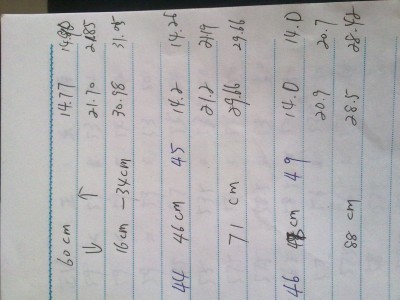 60cm 14.77
↓ ↑ 21.70 21.85
16cm -34cm 30.98 31.05
44 46cm 45 14.2 14.26
21.2 21.9
71 cm 29.66 29.66
46 cm 49 14.0 14.0
20.9 20.7
88 cm 28.5 28.42